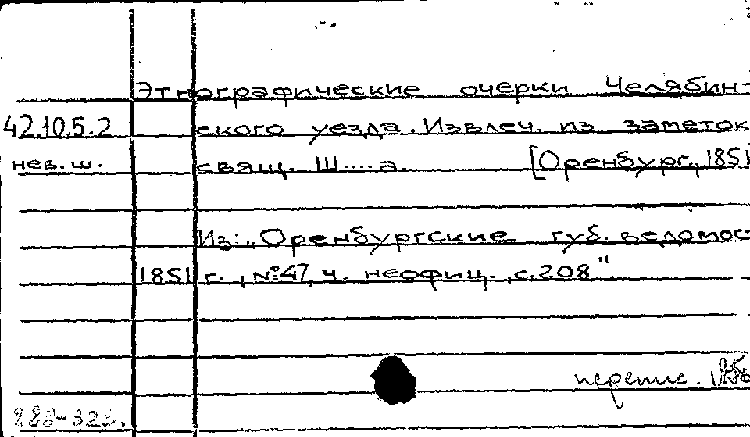 Этнографические очерки Челябин-
42.10.5.2 ского уезда. Извлеч. из заметок
нев. ш. свящ. Ш....а. [Оренбург, 1851
Из: „Оренбургские губ. ведомос
1851 г., №47, ч. неофиц., с. 208"
перепис.